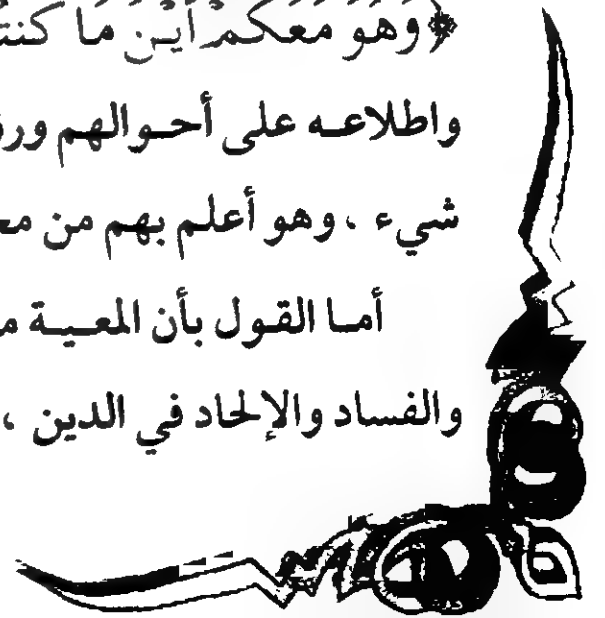 ﴿وَهُوَ مَعَكُمْ أَيْنَ مَا
واطلاعه على أحوالهم
شيء ، وهو أعلم بهم من
أما القول بأن المعية
والفساد والإلحاد في الدين ،